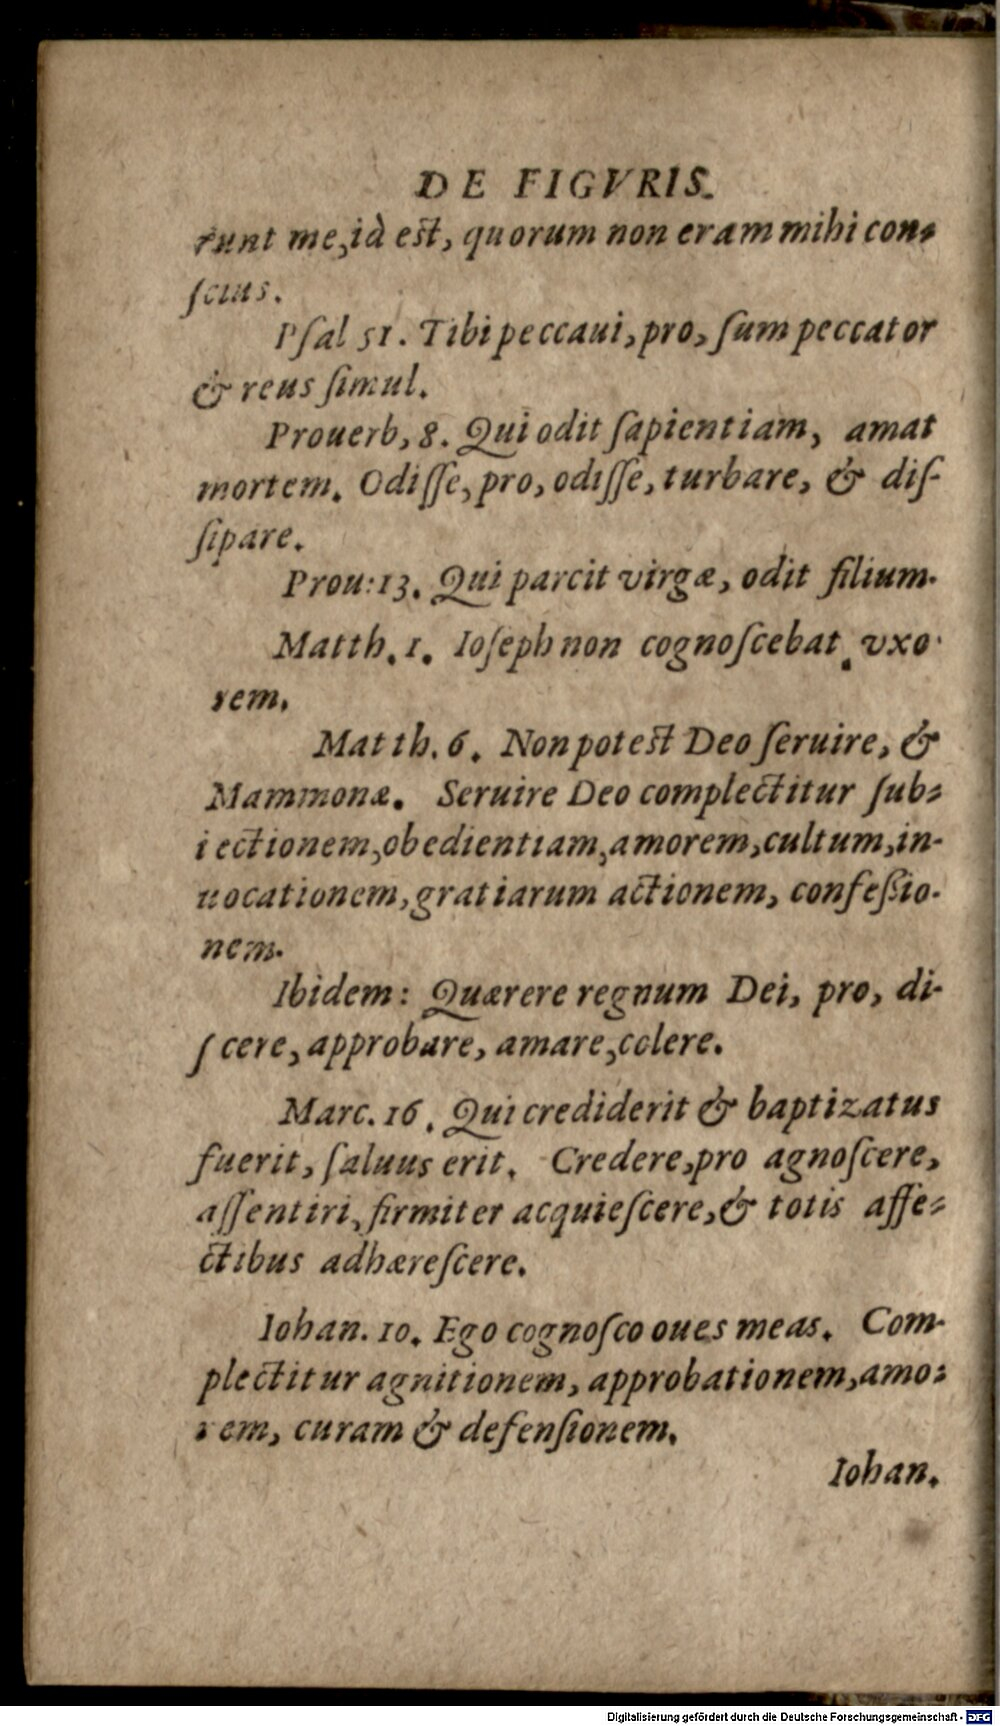 DE FIGVRIS.
runt me, id est, quorum non eram mihi con-
ſcius.
Pſal 51. Tibi peccaui, pro, ſum peccator
& reus ſimul.
Prouerb, 8. Qui odit ſapientiam, amat
mortem. Odiſſe, pro, odiſſe, turbare, & diſ-
ſipare.
Prou: 13. Qui parcit virgæ, odit filium.
Matth. 1. Ioſeph non cognoſcebat vxo-
rem.
Matth. 6. Non potest Deo ſeruire, &
Mammonæ. Seruire Deo complectitur ſub-
iectionem, obedientiam, amorem, cultum, in-
uocationem, gratiarum actionem, confeßio-
nem.
Ibidem: Quærere regnum Dei, pro, di-
ſcere, approbare, amare, colere.
Marc. 16. Qui crediderit & baptizatus
fuerit, ſaluus erit. Credere, pro agnoſcere,
aſſentiri, firmiter acquieſcere, & totis affe-
ctibus adhæreſcere.
Iohan. 10. Ego cognoſco oues meas. Com-
plectitur agnitionem, approbationem, amo-
rem, curam & defenſionem.
Iohan.
Digitalisierung gefördert durch die Deutsche Forschungsgemeinschaft - DFG